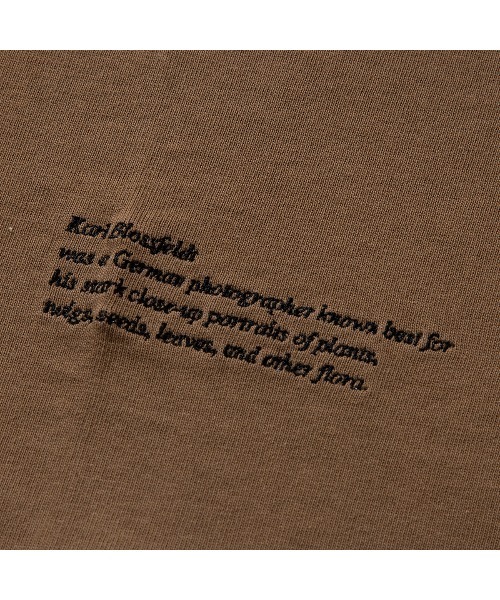 Karl Blossfeldt
was a German photographer known best for
his stark close-up portraits of plants,
twigs, seeds, leaves, and other flora.